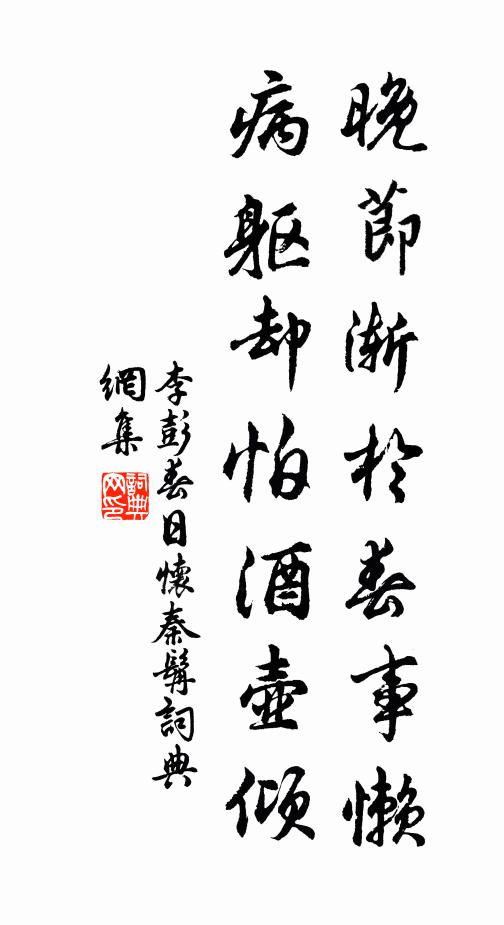 晚節漸於春事懶
病軀却怕酒壺傾
李彭春日懷秦髯詞典
網集
詞典网印